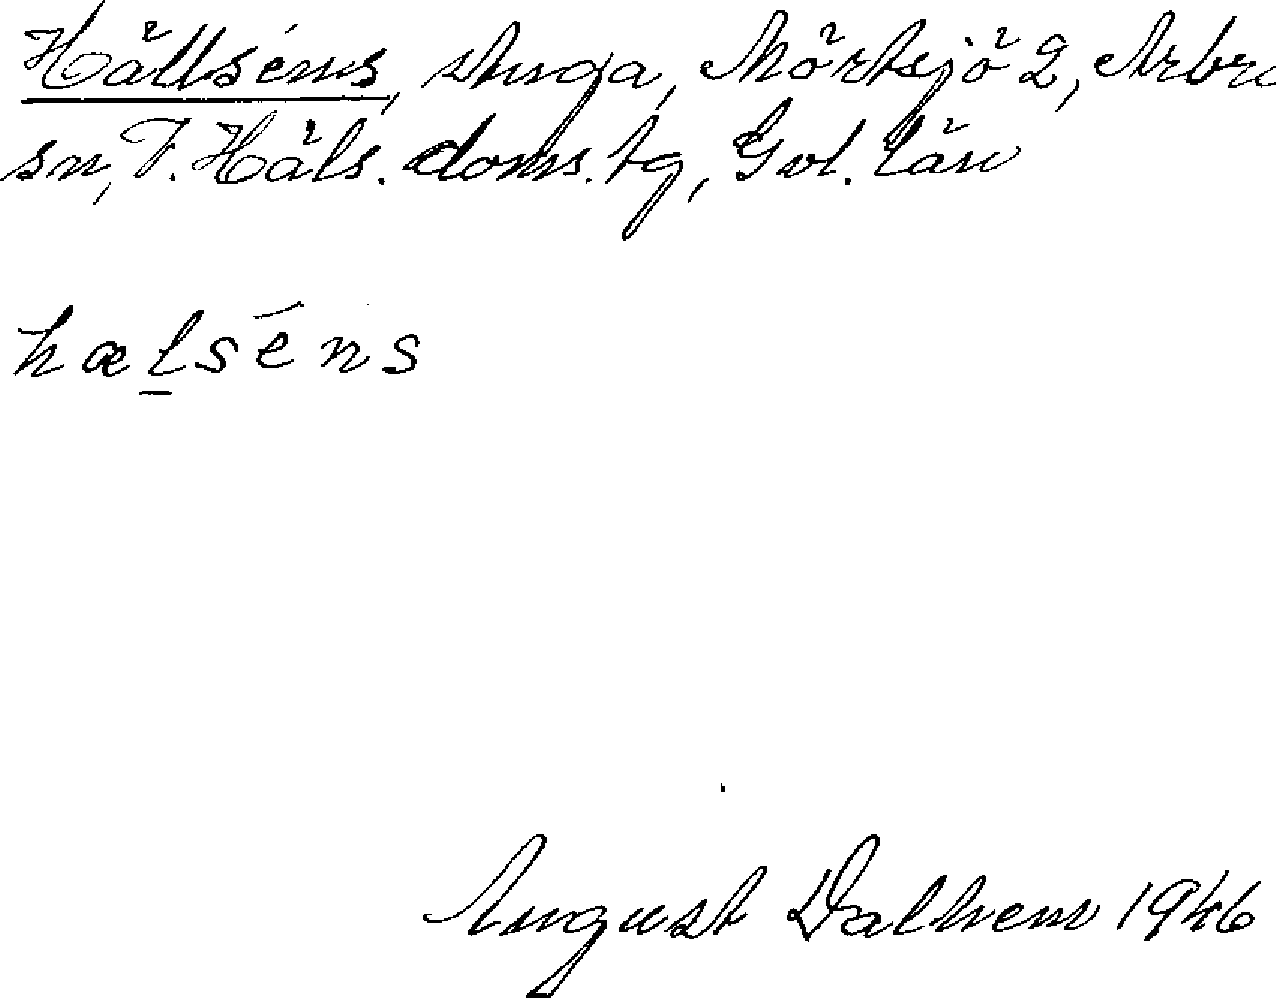 Hällséns, stuga, Mörtsjö 2, Arbrå
sn, V. Häls. doms.tg, Gvl. län
hælséns
August Dalhem 1946